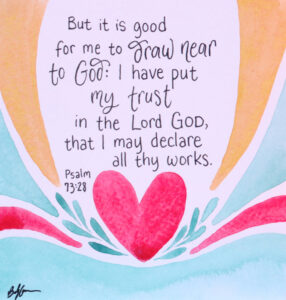 But it is good
for me to draw near
to God: I have put
my trust
in the Lord GOD,
that I may declare
all thy works.
Psalm
73:28